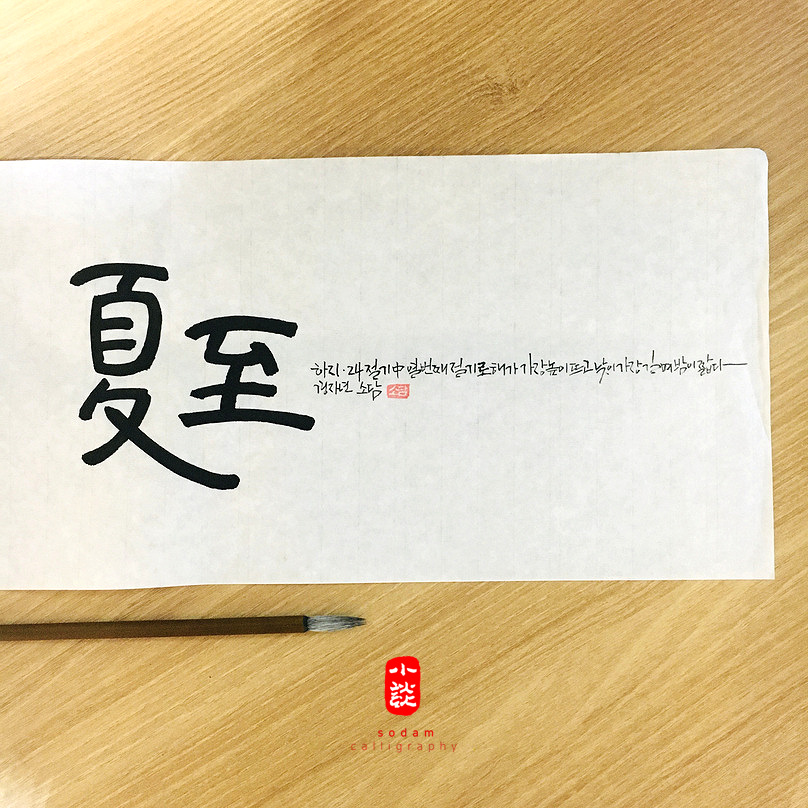 夏至
하지·24절기中 열번째 절기로 해가 가장 높이 뜨고 낮이 가장 길며 밤이 짧다
경자년 소담
소담
小談
sodam
calligraphy